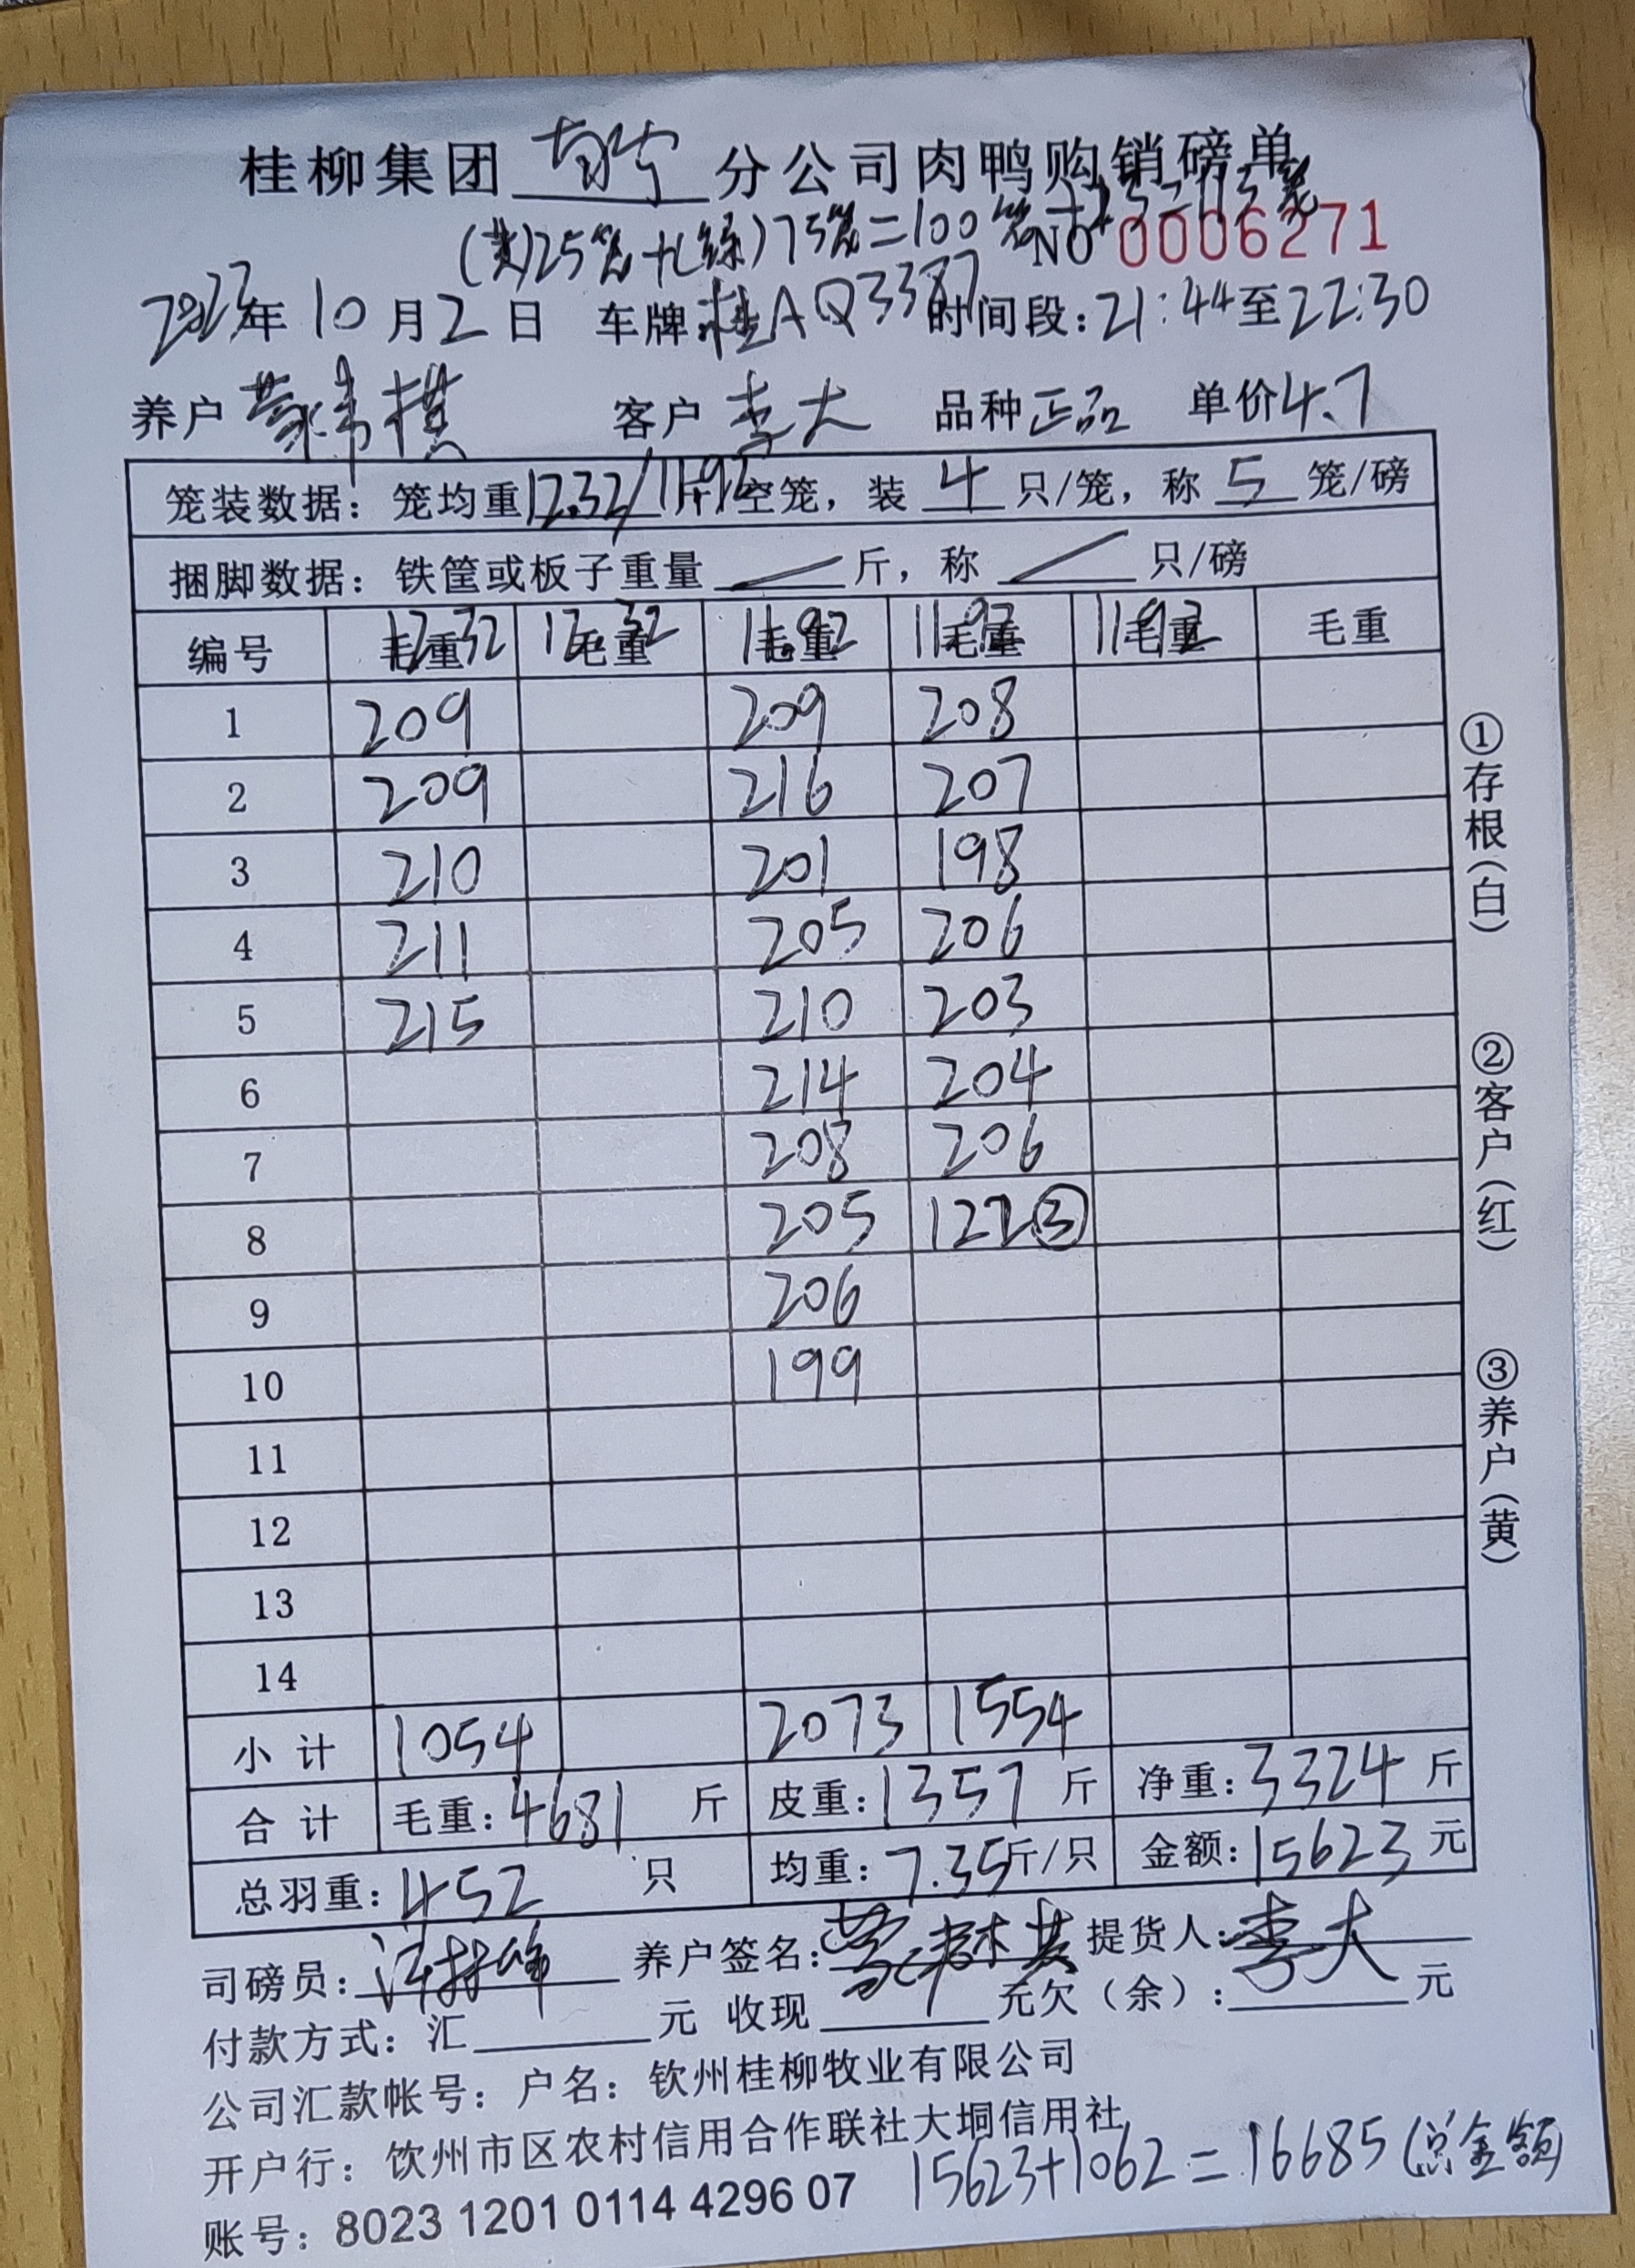 桂柳集团 南宁 分公司肉鸭购销磅单
(黄)25笼+(绿)75笼=100笼+13=113笼
NO 0006271
2023年10月2日 车牌:桂AQ3387 时间段:21:44至22:30
养户 客户 李大 品种 正品 单价4.7
笼装数据: 笼均重12.32/11.92斤/空笼, 装 4 只/笼, 称 5 笼/磅
捆脚数据: 铁筐或板子重量 / 斤, 称 / 只/磅
编号 毛重12.32 毛重12.32 毛重11.92 毛重11.92 毛重11.92 毛重
1 209 209 208
2 209 216 207
3 210 201 198
4 211 205 206
5 215 210 203
6 214 204
7 208 206
8 205 122③
9 206
10 199
11
12
13
14
小计 1054 2073 1554
合计 毛重:4681 斤 皮重:1357 斤 净重:3324 斤
总羽重:452 只 均重:7.35斤/只 金额:15623元
司磅员: 养户签名: 提货人:李大
付款方式: 汇 元 收现 元欠(余): 元
公司汇款帐号: 户名: 钦州桂柳牧业有限公司
开户行: 饮州市区农村信用合作联社大垌信用社
账号: 8023 1201 0114 4296 07
15623+1062=16685(总金额)
①存根(白)
②客户(红)
③养户(黄)